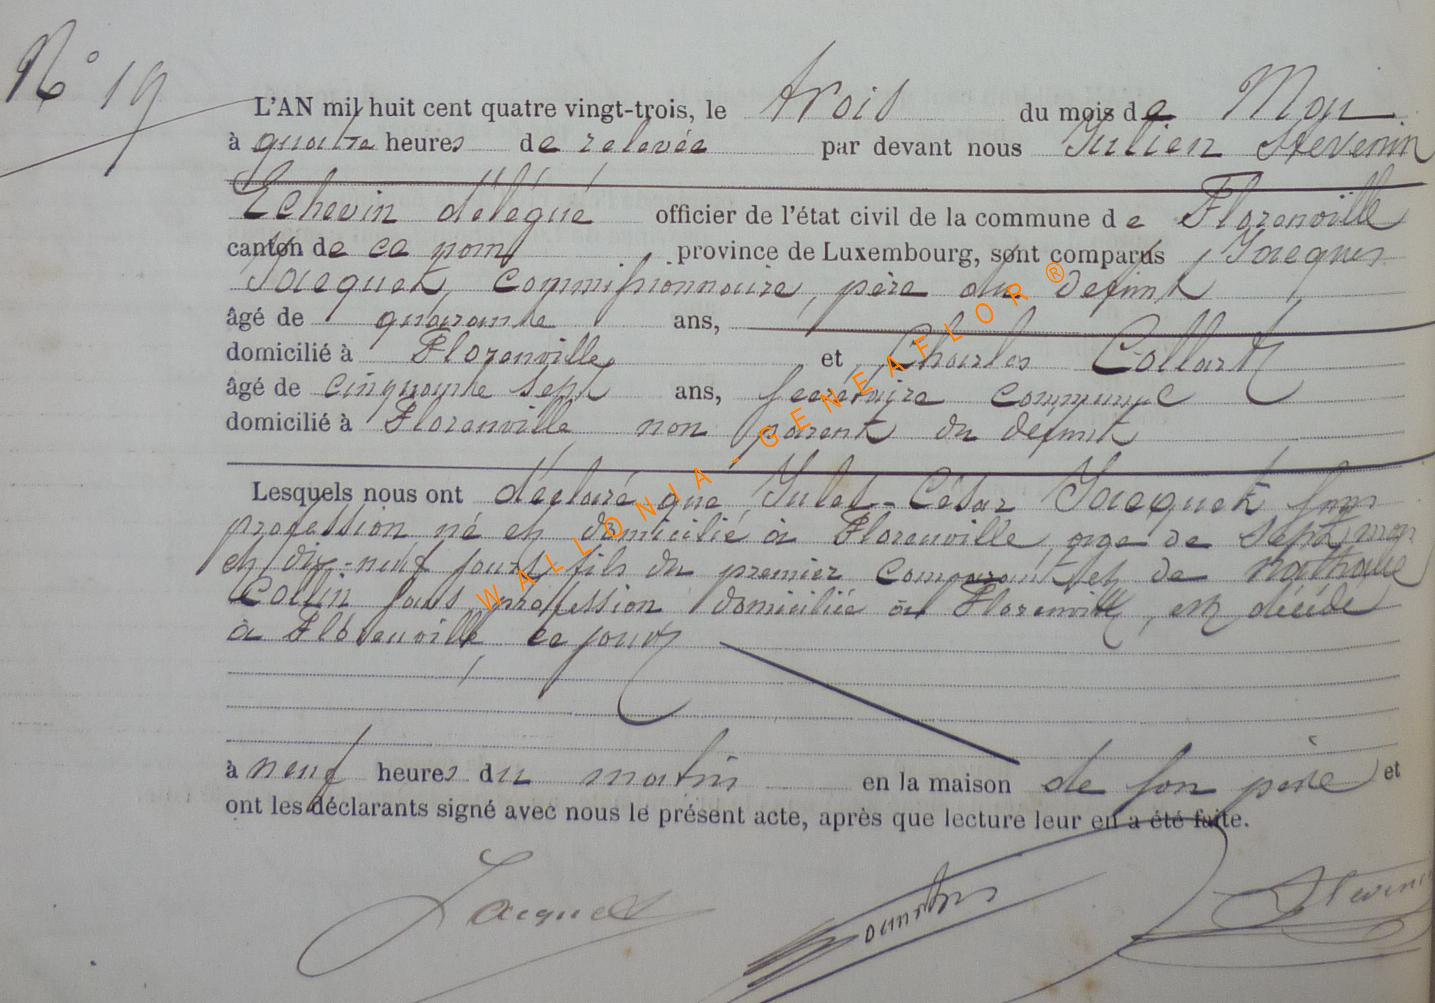 N° 19
L'AN mil huit cent quatre vingt-trois, le trois du mois de May
à quatre heures de relevée par devant nous Julien Stevenin
Echevin délégué officier de l'état civil de la commune de Florenville
canton de ce nom province de Luxembourg, sont comparus Jacques
Jacquet, commissionnaire, père du defunt
âgé de quarante ans,
domicilié à Florenville et Charles Collart
âgé de cinquante sept ans, secrétaire communal
domicilié à Florenville non parent du defunt
Lesquels nous ont déclaré que Jules-César Jacquet sans
profession né et domicilié à Florenville age de sept mois
et dix-neuf jours fils du premier comparant et de Nathalie
Collin sans profession domiciliée à Florenville, est décédé
à Florenville ce jour
à neuf heures du matin en la maison de son père et
ont les déclarants signé avec nous le présent acte, après que lecture leur en a été faite.
Jacquet Stevenin
WALLONIA-GENEAFLOR®